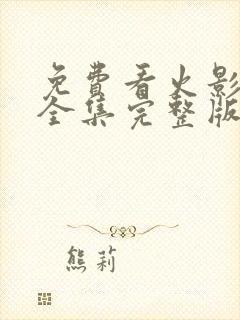 免费看火影
全集完整版
熊莉